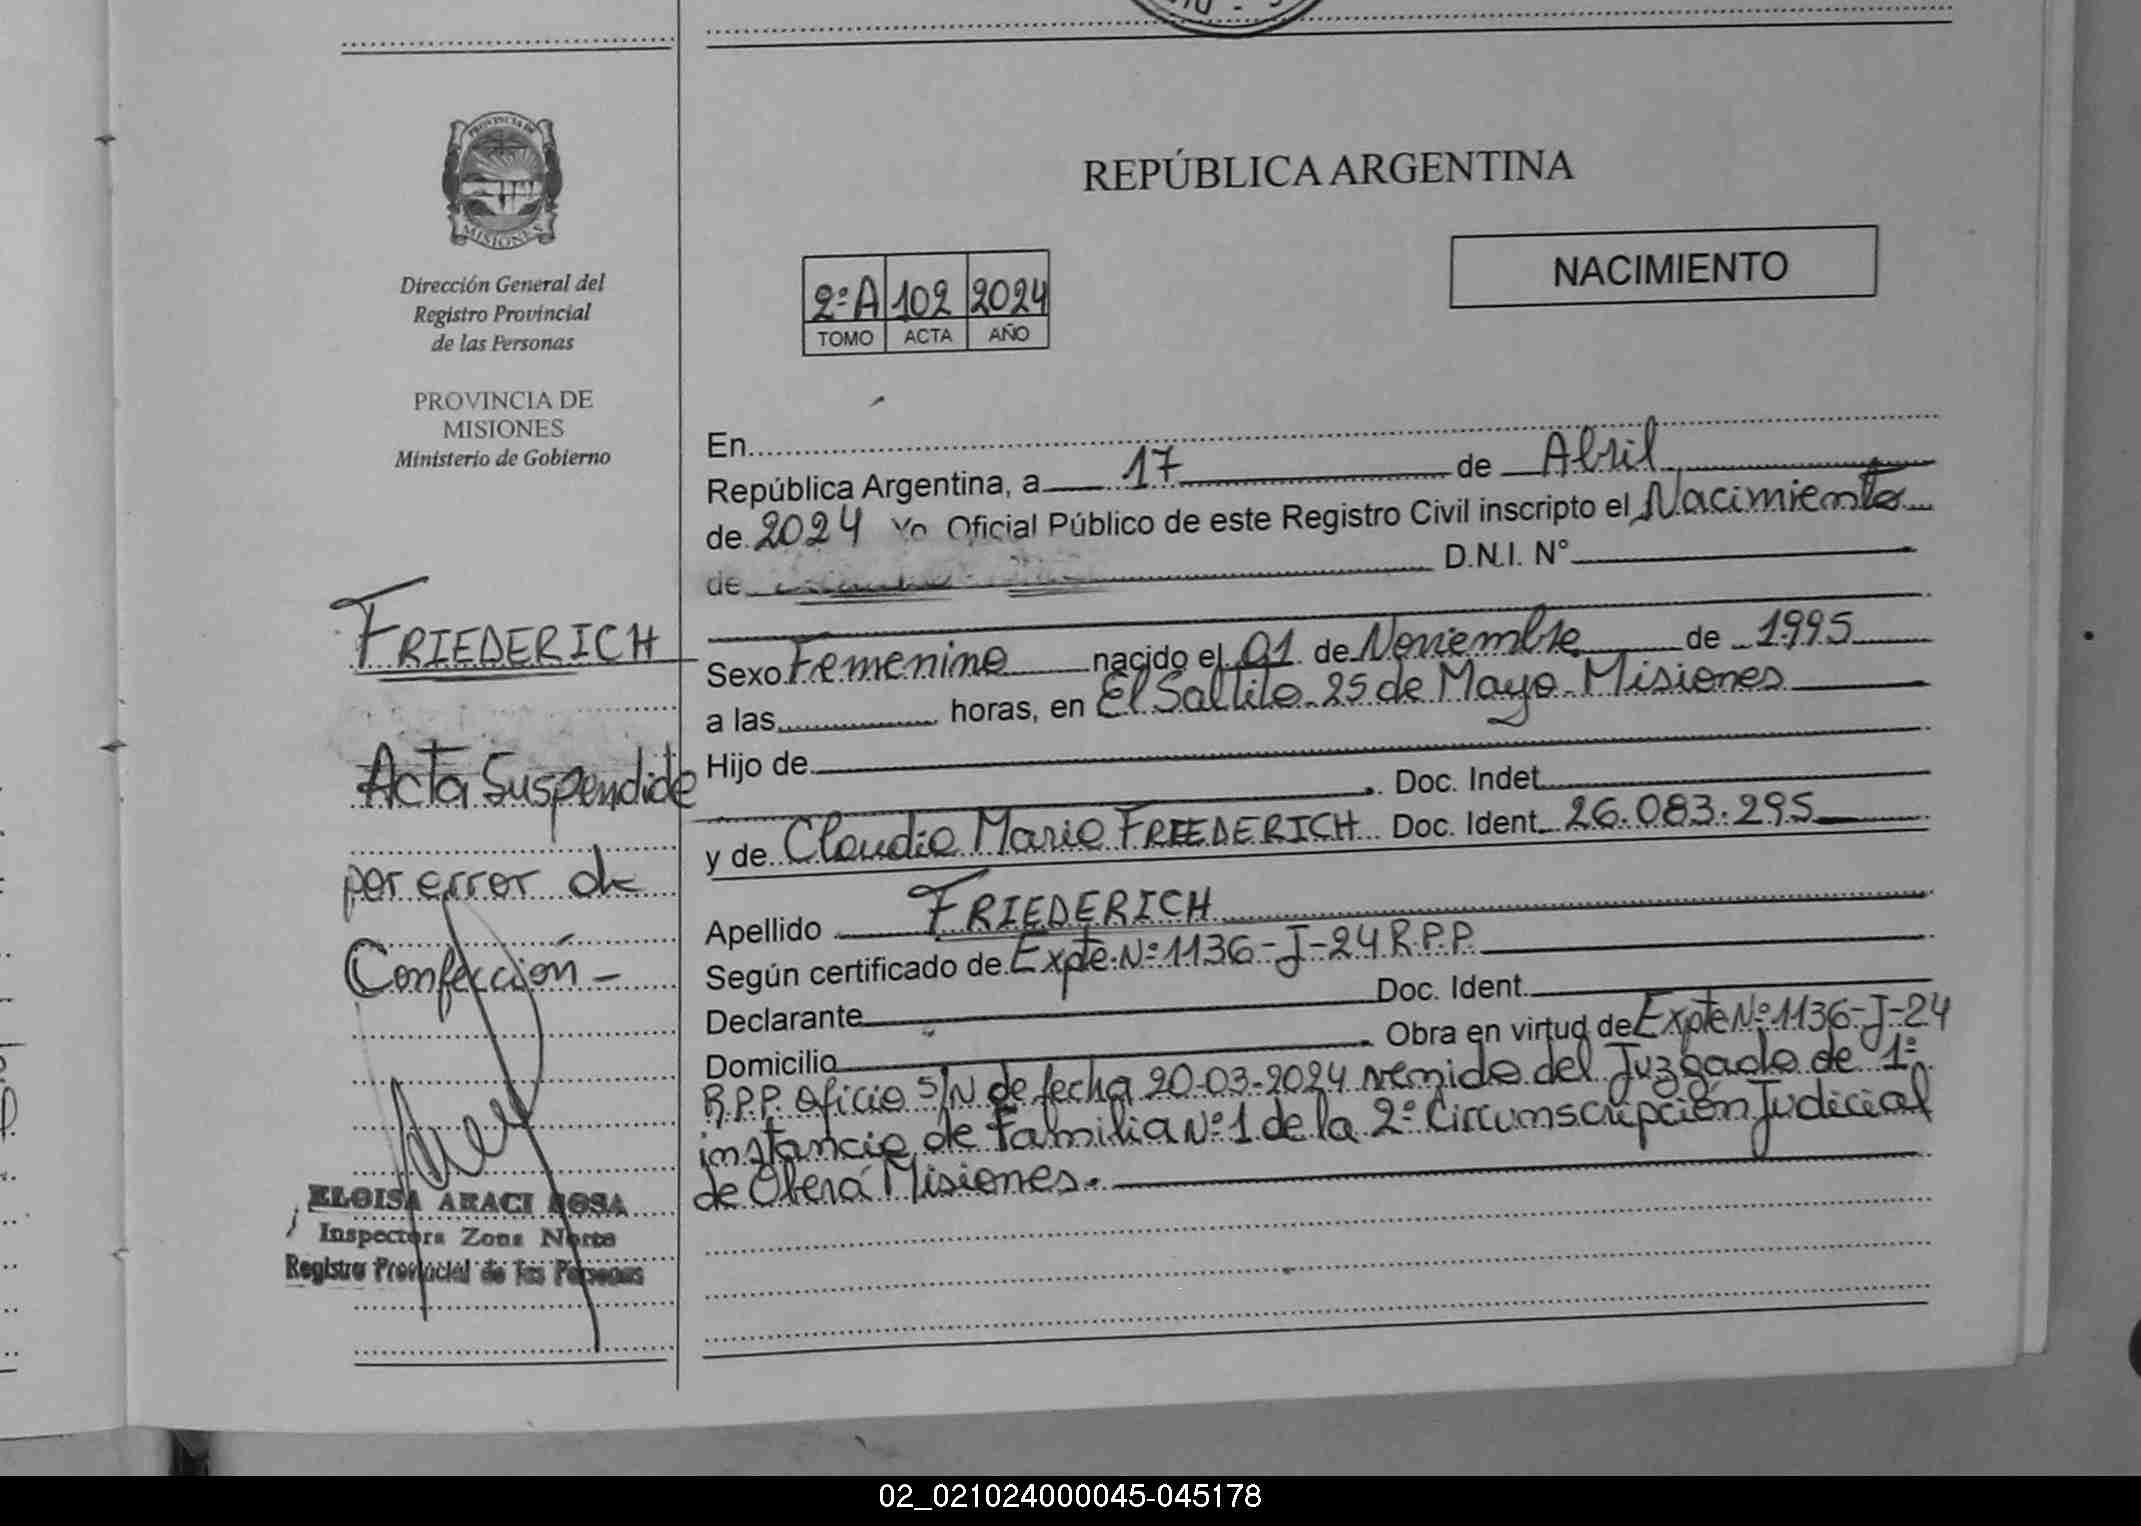 PROVINCIA DE
MISIONES
Dirección General del
Registro Provincial
de las Personas
PROVINCIA DE
MISIONES
Ministerio de Gobierno
FRIEDERICH
Acta Suspendida
por error de
Confección -
ELOISA ARACI ROSA
Inspectora Zona Norte
Registro Provincial de las Personas
REPÚBLICA ARGENTINA
NACIMIENTO
2º A 102 2024
TOMO ACTA AÑO
En
República Argentina, a 17 de Abril
de 2024 Yo Oficial Público de este Registro Civil inscripto el Nacimiento
de D.N.I. N°
Sexo Femenino nacido el 01 de Noviembre de 1995
a las horas, en El Saltito - 25 de Mayo - Misiones
Hijo de
Doc. Indet
y de Claudia Maria FRIEDERICH Doc. Ident. 26.083.295
Apellido FRIEDERICH
Según certificado de Expte. Nº 1136-J-24 R.P.P.
Declarante Doc. Ident.
Domicilio . Obra en virtud de Expte Nº 1136-J-24
R.P.P. Oficio S/N de fecha 20-03-2024 venido del Juzgado de 1º
instancia de Familia Nº 1 de la 2º Circunscripción Judicial
de Oberá Misiones.
02_021024000045-045178